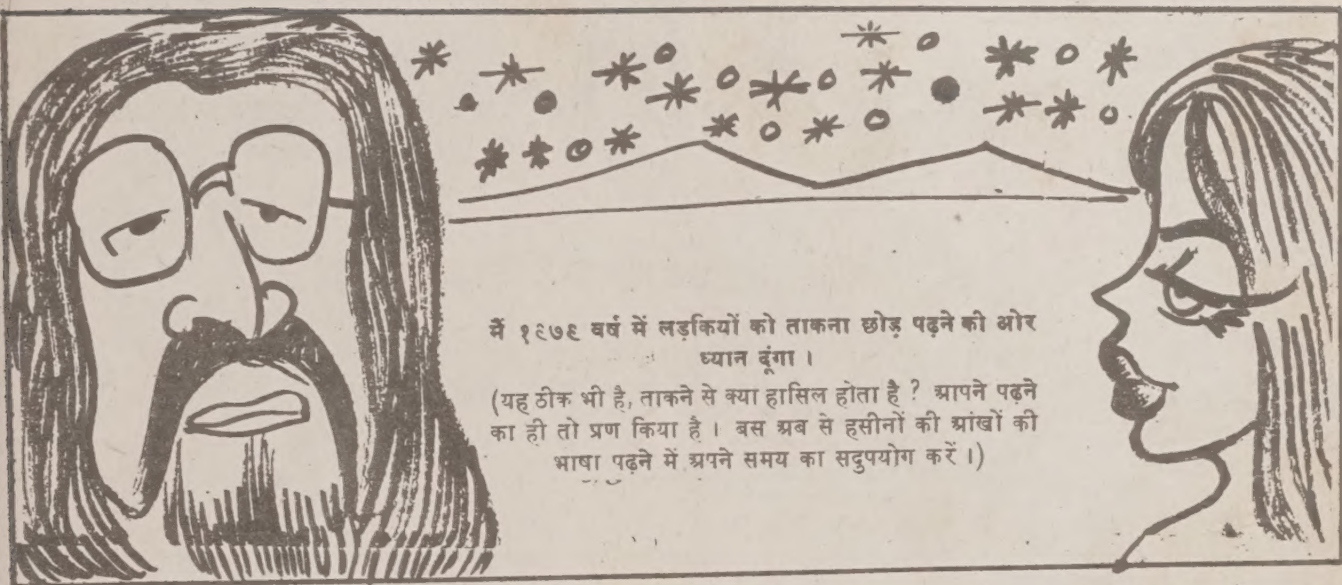 मैं १९७९ वर्ष में लड़कियों को ताकना छोड़ पढ़ने की ओर
ध्यान दूंगा ।
(यह ठीक भी है, ताकने से क्या हासिल होता है ? आपने पढ़ने
का ही तो प्रण किया है । बस अब से हसीनों की आंखों की
भाषा पढ़ने में अपने समय का सदुपयोग करें ।)